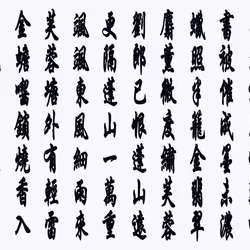 書被催成墨未濃
蠟照半籠金翡翠
麝薰微度繡芙蓉
劉郎已恨蓬山遠
更隔蓬山一萬重
颯颯東風細雨來
芙蓉塘外有輕雷
金蟾嚙鎖燒香入